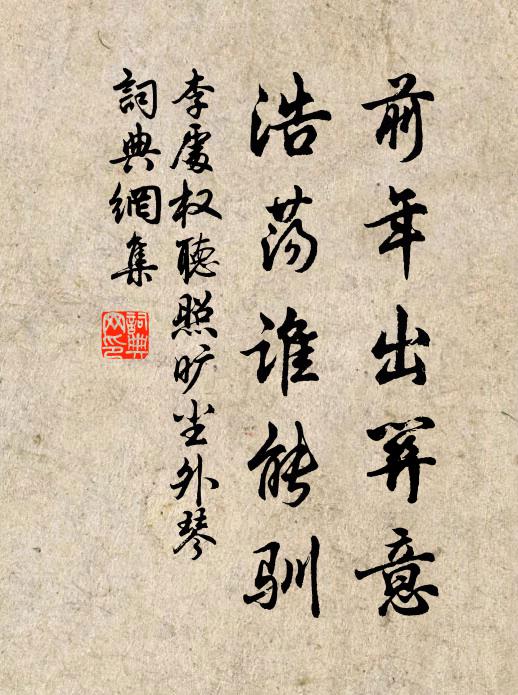 前年出关意
浩荡谁能驯
李处权聽照旷尘外琴
詞典網集
詞典网印